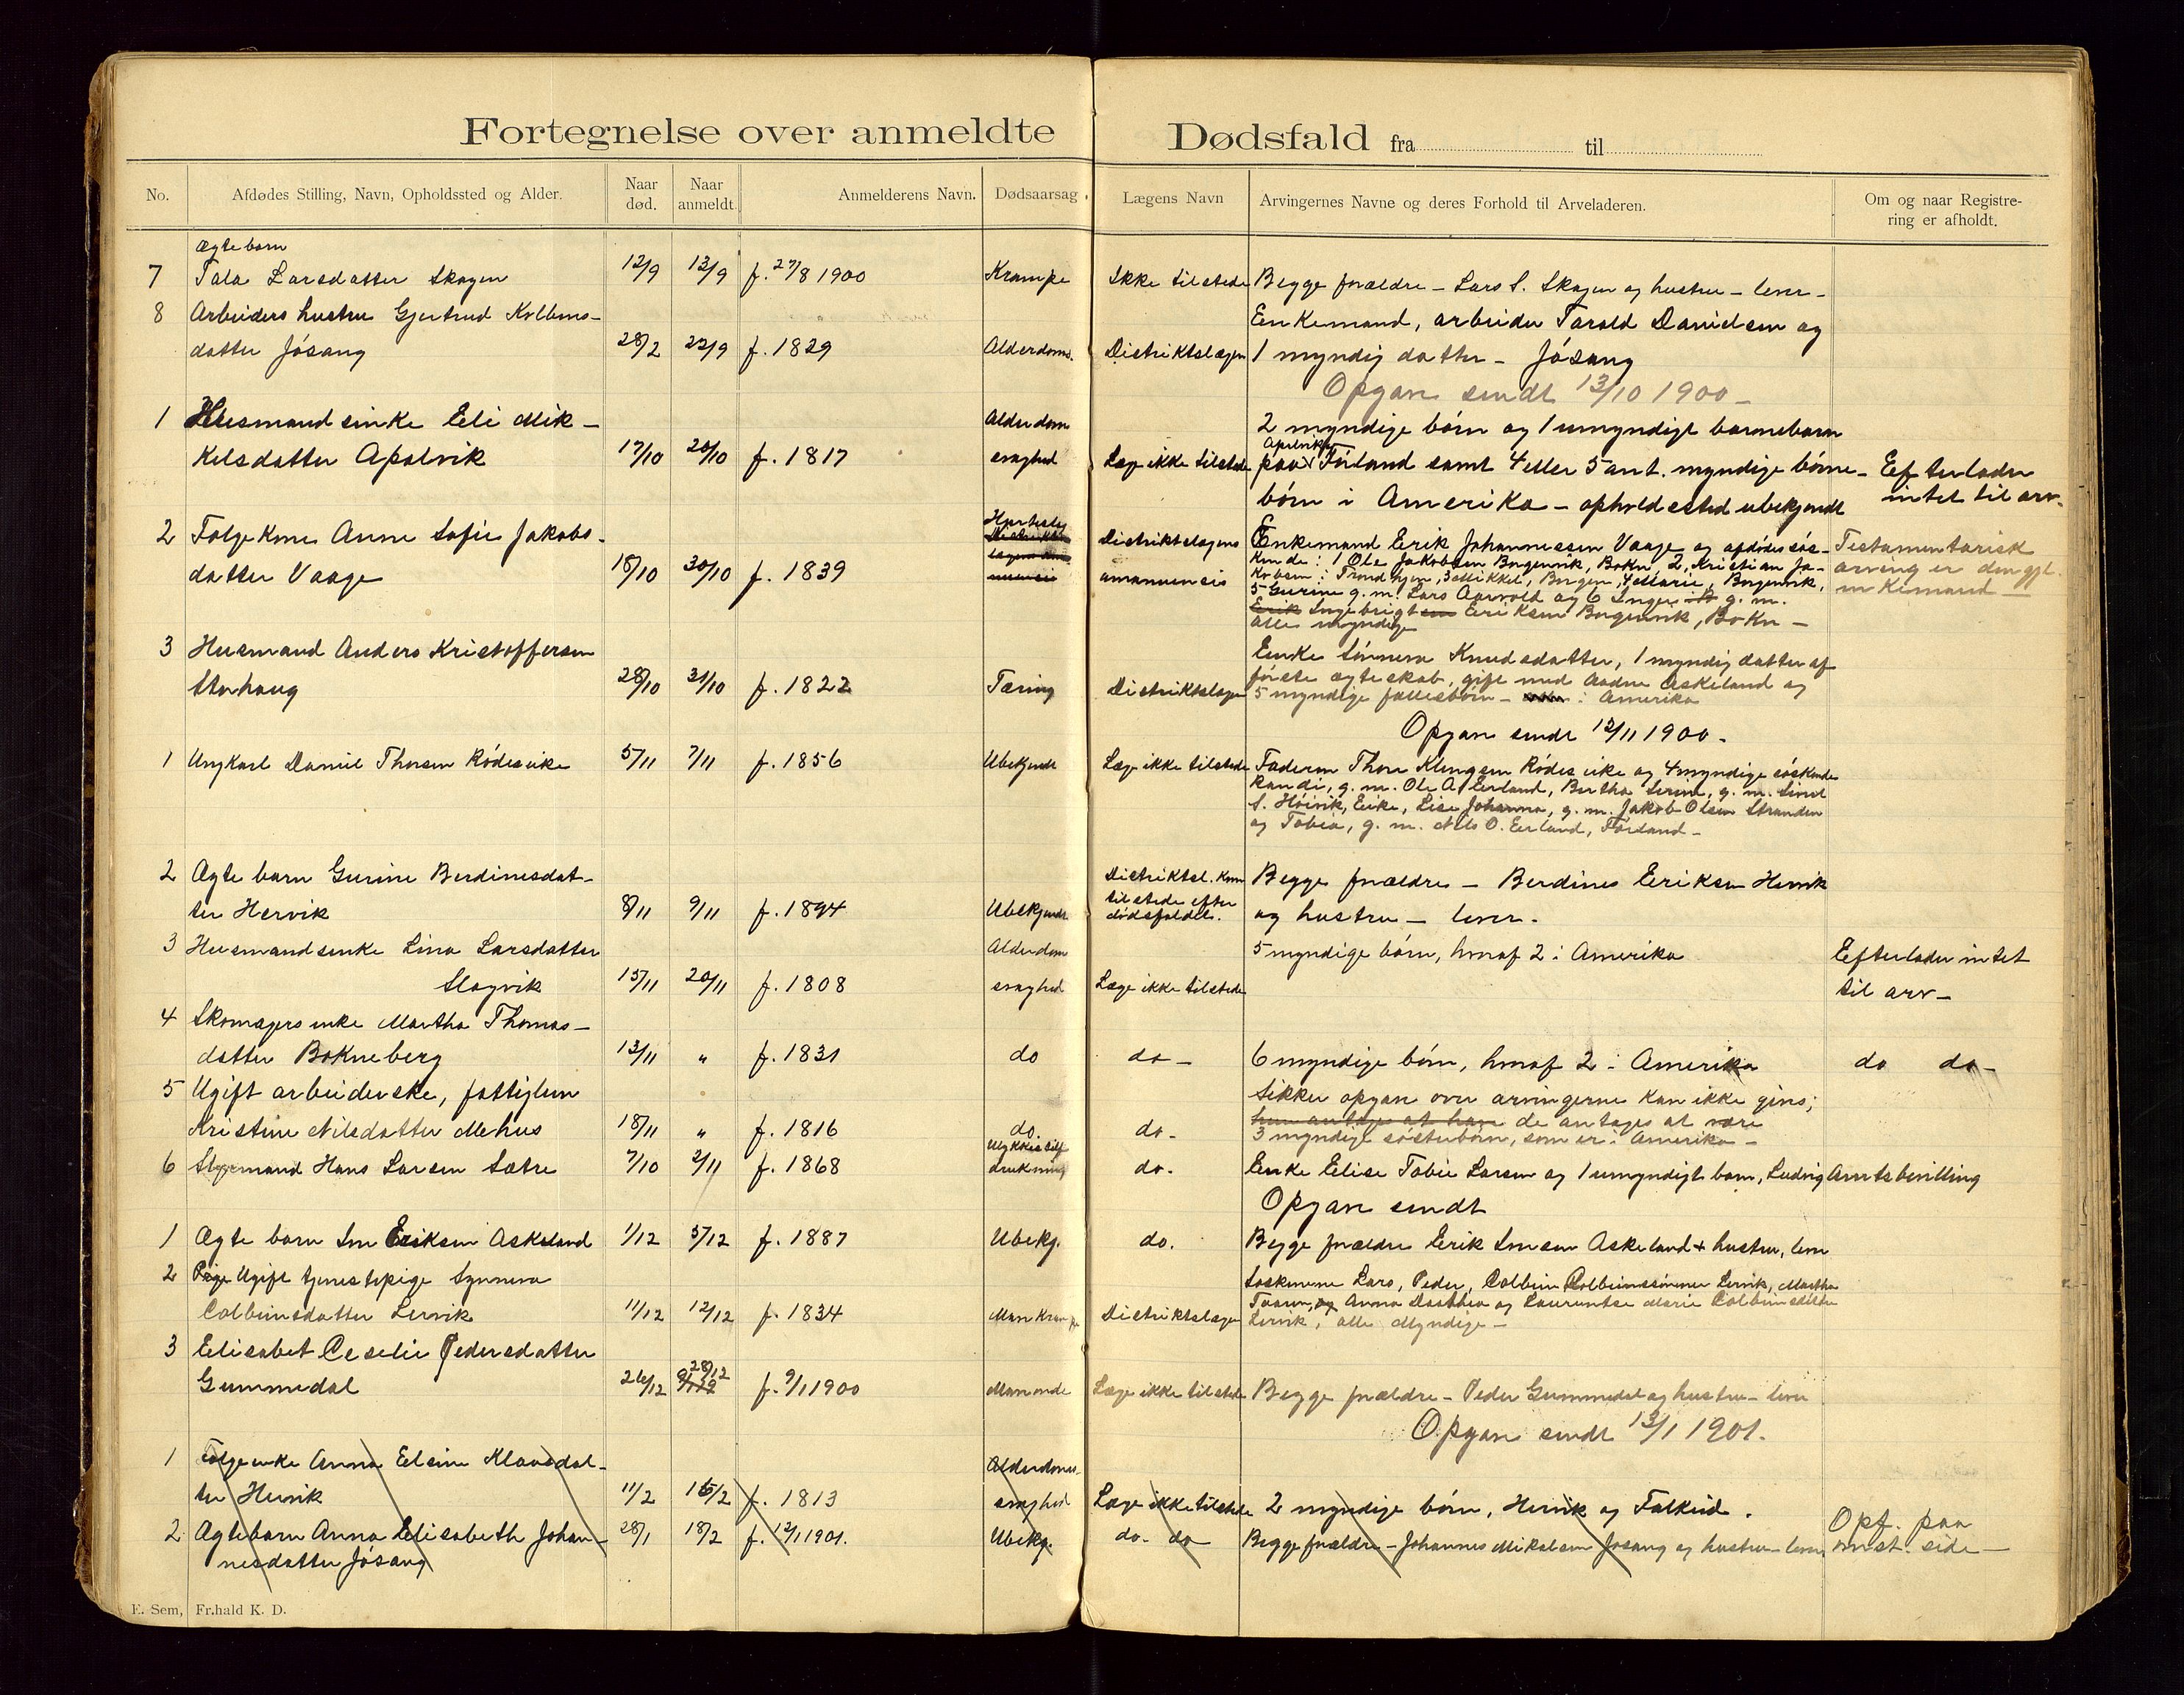 Fortegnelse over anmeldte Dødsfald fra til
No. Afdødes Stilling, Navn, Opholdssted og Alder. Naar død. Naar anmeldt. Anmelderens Navn. Dødsaarsag. Lægens Navn Arvingernes Navne og deres Forhold til Arveladeren. Om og naar Registrering er afholdt.
Ægte barn
7 Tala Larsdatter Skagen 12/9 13/9 f. 27/8 1900 Krampe Ikke tilstede Begge forældre - Lars S. Skagen og hustru - lever -
8 Arbeiders hustru Gjertrud Enkemand, arbeider Tarald Davidsen og
datter Jósang 28/2 22/9 f. 1829 Alderdoms. Distriktslægen 1 myndig datter - Jósang
Opgave sendt 13/10 1900 -
1 Husmandsenke Eli Mik- Alderdom 2 myndige børn og 1 umyndigt barnebarn
kelsdatter Apalvik 17/10 20/10 f. 1817 svaghed Læge ikke tilstede paa Apalvik, Førland samt 4 eller 5 ant. myndige børne- Efterlader
børn i Amerika - opholdssted ubekjendt intet til arv.
2 Folgekone Anne Sofie Jakobs- Distriktslægens Enkemand Erik Johannessen Vaage og afdødes søs- Testamentarisk
datter Vaage 18/10 30/10 f. 1839 amanuensis kende: 1 Ole Jakobsen Bogenvik, Bokn, 2, Kristian Ja- arving er den gjl.
kobsen i Trondhjem, 3 Mikkel, Borgen, 4 Marie, Bogenvik, enkemand
5 Gurine g. m. Lars Aarvold og 6 Inger g. m.
Erik Ingebrigtsen Eriksen Bogenvik, Bokn -
alle myndige
3 Husmand Anders Kristoffersen Enke Sønneva Knudsdatter, 1 myndig datter af
Storhaug 28/10 31/10 f. 1822 Tæring Distriktslægen første ægteskab, gift med Aadne Askeland og
5 myndige fællesbørn - i Amerika
Opgave sendt 12/11 1900 -
1 Ungkarl Daniel Thorsen Rødesvike 5/11 7/11 f. 1856 Ubekjendt Læge ikke tilstede Faderen Thore Rødesvike og 4 myndige søskende
Randi, g. m. Ole A. Eerland, Bertha Serine, g. m. Simet
S. Høivik, Enke, Lise Johanna, g. m. Jakob Olsen Stranden
og Tobia, g. m. Nils O. Eerland, Førland -
2 Ægte barn Gurine Berdinesdat- Distriktsl. kom Begge forældre - Berdines Eriksen Hervik
ter Hervik 8/11 9/11 f. 1894 Ubekjendt tilstede efter dødsfaldet. og hustru - lever.
3 Husmandsenke Lina Larsdatter Alderdom 5 myndige børn, hvoraf 2 i Amerika Efterlader intet
Slogvik 15/11 20/11 f. 1808 svaghed Læge ikke tilstede til arv -
4 Skomagersenke Martha Thomas-
datter Bokneberg 13/11 " f. 1831 do do - 6 myndige børn, hvoraf 2 i Amerika do do -
5 Ugift arbeiderske, fattiglem Sikker opgave over arvingerne kan ikke gives;
Kristine Nilsdatter Mehus 18/11 " f. 1816 do. do - hun antages at have de antages at være
3 myndige søsterbørn, som er i Amerika -
6 Styrmand Hans Larsen Sætre 7/10 2/11 f. 1868 drukning do. Enke Elise Tobie Larsen og 1 umyndigt barn, Ludvig Amtsbevilling
Opgave sendt
1 Ægte barn Eriksen Askeland 1/12 5/12 f. 1887 Ubekj. do. Begge forældre Erik Askeland + hustru, lever
2 Pige Ugift tjenestepige Synneva Søsknene Lars, Peder, Colbein Colbeinssønner Lervik, Martha
Colbeinsdatter Lervik 11/12 12/12 f. 1834 Distriktslægen og Anna Dorthea og Laurentse Marie Colbeinsdatter
Lervik, alle Myndige -
3 Elisabet Ceselie Pedersdatter
Gummedal 26/12 28/12 f. 9/1 1900 Læge ikke tilstede Begge forældre - Peder Gummedal og hustru - lever
Opgave sendt 13/1 1901.
1 Folgeenke Anna Elsine Klausdat- Alderdoms-
ter Hervik 11/2 16/2 f. 1813 svaghed Læge ikke tilstede 2 myndige børn, Hervik og Falkeid. Opf. paa
2 Ægtebarn Anna Elisabeth Johan- 28/1 18/2 f. 12/1 1901. Ubekj. do. do Begge forældre - Johannes Mikalsen Jøsang og hustru - lever omst. side -
nesdatter Jósang
E. Sem, Fr.hald K. D.